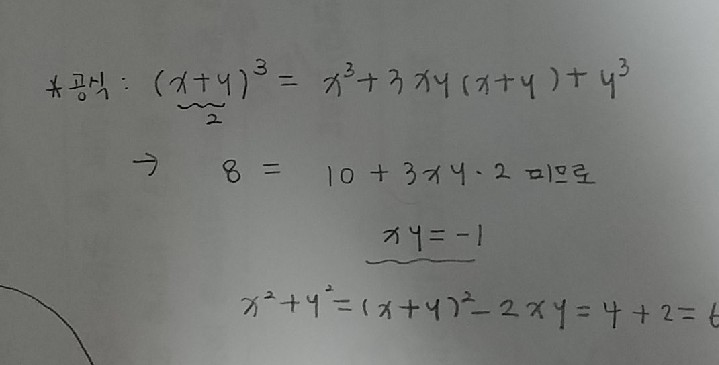 * 공식 : (x+y)³ = x³+3xy(x+y)+y³
2
→ 8 = 10 + 3xy·2 이므로
xy = -1
x²+y² = (x+y)² - 2xy = 4+2 = 6